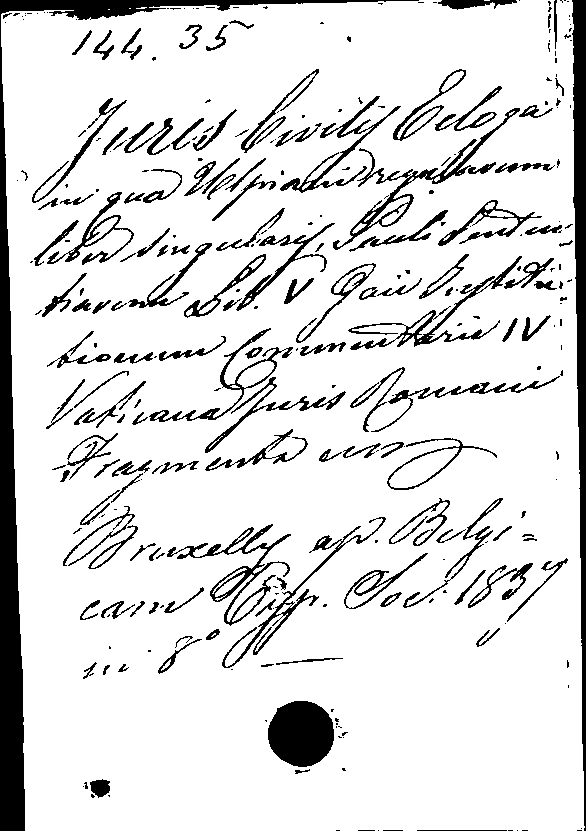 144. 35
Juris Civilis Ecloga
in qua Ulpiani regularum
liber singularis, Pauli Senten-
tiarum Lib. V Gaii Institu-
tionum Commentarii IV
Vaticana Juris Romani
Fragmenta
Bruxellis ap. Belgi=
cam Typ. Soc. 1837
in 8°